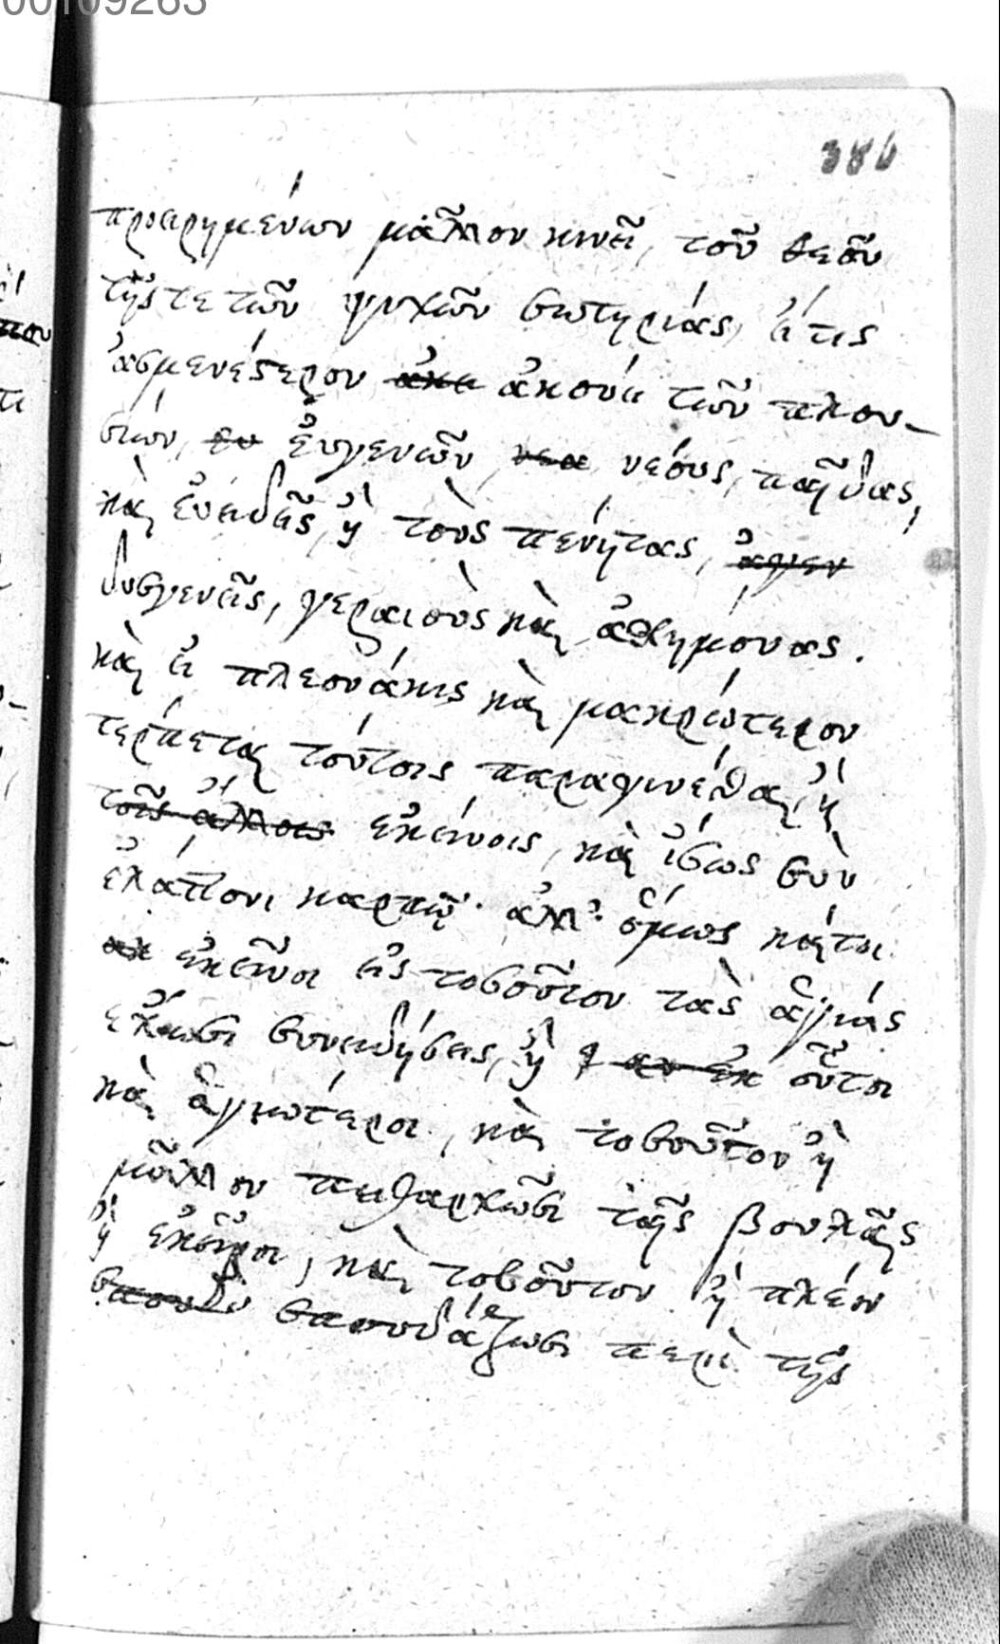 00109263
386
προειρημένων μᾶλλον κινεῖ, τοῦ θεοῦ
τῆς τε τῶν ψυχῶν σωτηρίας, εἴ τις
ἀσμενέστερον ἀκούει τῶν πλου-
σίων, εὐγενῶν, νέους, παῖδας,
καὶ εὐειδεῖς, ἢ τοὺς πένητας,
δυσγενεῖς, γεραιοὺς καὶ ἀσχήμονας.
καὶ εἰ πλεονάκις καὶ μακρώτερον
τέρπεται τούτοις παραγινέσθαι, ἢ
τοῖς ἄλλοις ἐκείνοις, καὶ ἴσως σὺν
ἐλάττονι καρπῷ. ἀλλ' ὅμως καίτοι
ἐκεῖνοι εἰς τοσοῦτον τὰς ἁγίας
ἔχωσι συνειδήσεις, ἢ οὗτοι
καὶ ἁγιώτεροι, καὶ τοσοῦτον ἢ
μᾶλλον πειθαρχῶσι ταῖς βουλαῖς
ἢ ἐκεῖνοι, καὶ τοσοῦτον ἢ πλέον
σπουδάζωσι περὶ τῆς